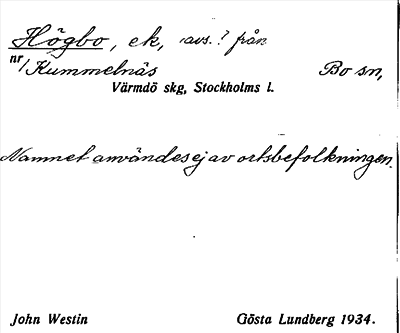 Högbo, ek, avs.? från
nr/Kummelnäs Bo sn,
Värmdö skg, Stockholms l.
Namnet användes ej av ortsbefolkningen.
John Westin Gösta Lundberg 1934.